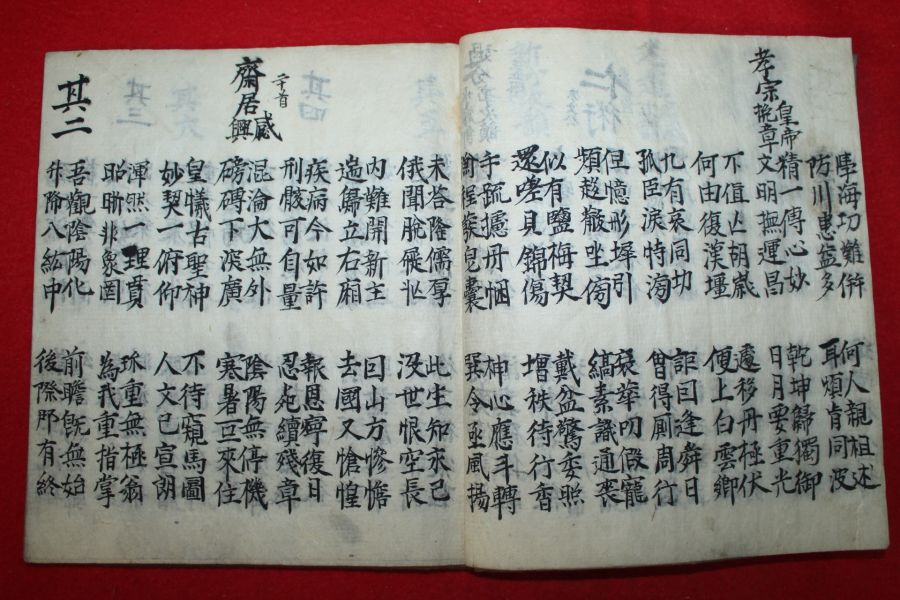 陸海功難併
防川患益多
何人親祖述
耳順肯同波
孝宗皇帝挽章
精一傳心妙
文明撫運昌
乾坤歸獨御
日月要重光
不值亾胡歲
何由復漢壃
遽移丹極伏
便上白雲鄉
九有哀同功
孤臣淚特滂
詎回逢舜日
曾得厠周行
但憶形墀引
頻趍黼坐傍
袞華叨假寵
縞素識通喪
似有鹽梅契
還嗟貝錦傷
戴盆驚委照
增秩待行香
手疏攄丹悃
皂囊
神心應斗轉
巽令亟風揚
未答隆儒厚
俄聞脫屣忙
此生知永已
沒世恨空長
内難開新主
遄歸立右廂
回山方慘憺
去國又愴惶
疾病今如許
形骸可自量
報恩寧復日
忍死續殘章
齋居感興 二十首
混淪大無外
磅礴下深廣
陰陽無停機
寒暑互來住
皇犧古聖神
妙契一俯仰
不待窺馬圖
人文已宣朗
渾然一理貫
昭晰非象罔
珎重無極翁
為我重指掌
其二
吾觀陰陽化
升降八紘中
前瞻旣無始
後際那有終